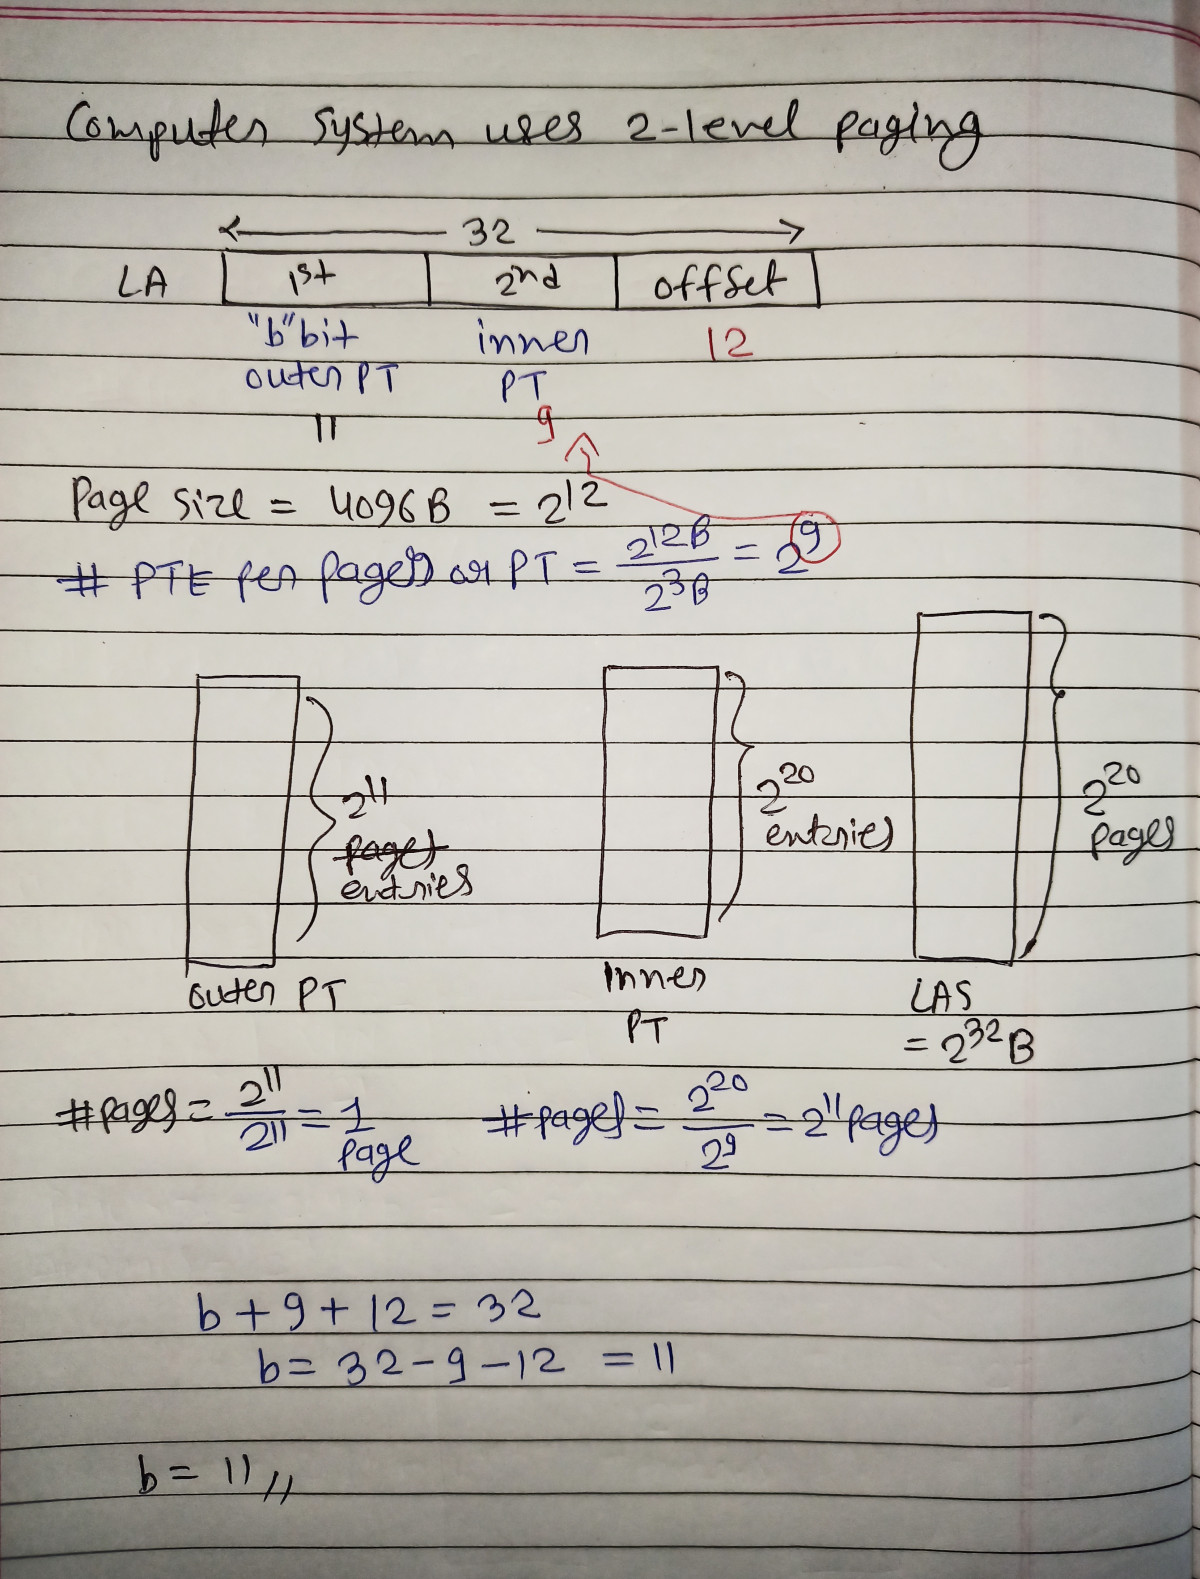 Computer System uses 2-level paging
32
LA 1st 2nd offset
"b" bit inner 12
outer PT PT
11 9
Page size = 4096B = 2^12
# PTE per pages or PT = 2^12B / 2^3B = 2^9
2^11 2^20 2^20
pages entries pages
entries
outer PT Inner LAS
PT = 2^32B
#pages = 2^11 / 2^11 = 1 page #pages = 2^20 / 2^9 = 2^11 pages
b + 9 + 12 = 32
b = 32 - 9 - 12 = 11
b = 11 //